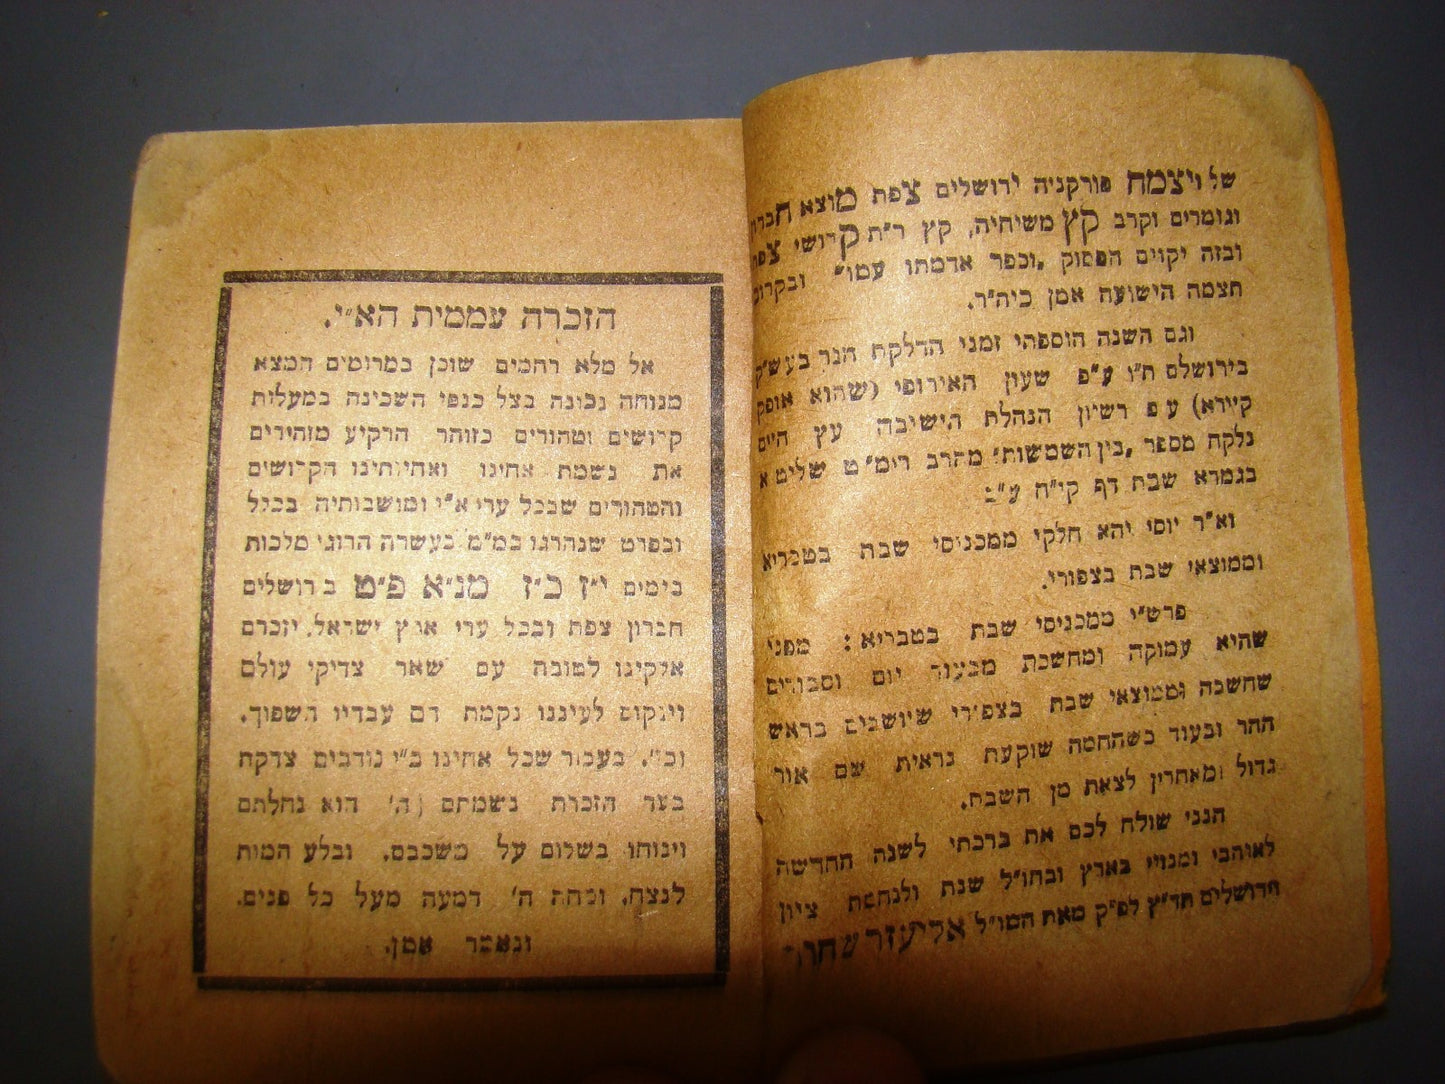 של ויצמח פורקניה ירושלים צפת מוצא חברון
וגומרים וקרב קץ משיחיה, קץ ר״ת קדושי צפת
ובזה יקוים הפסוק „וכפר אדמתו עמו״ ובקרוב
תצמח הישועה אמן כיה״ר.
וגם השנה הוספתי זמני הדלקת הנר בעש״ק
בירושלם ת״ו ע״פ שעון האירופי (שהוא אופק
קיירא) ע״פ רשיון הנהלת הישיבה עץ חיים
נלקח מספר „בין השמשות״ מהרב רימ״ט שליט״א
בגמרא שבת דף קי״ח ע״ב
וא״ר יוסי יהא חלקי ממכניסי שבת בטבריא
וממוצאי שבת בצפורי.
פרש״י ממכניסי שבת בטבריא: מפני
שהיא עמוקה ומחשכת מבעוד יום וסבורים
שחשכה וממוצאי שבת בצפורי שיושבים בראש
ההר ובעוד כשהחמה שוקעת נראית שם אור
גדול ומאחרין לצאת מן השבת.
הנני שולח לכם את ברכתי לשנה החדשה
לאוהבי ומנויי בארץ ובחו״ל שנת ולנחמת ציון
וירושלים תר״ץ לפ״ק מאת המו״ל אליעזר שחור
הזכרה עממית הא״י.
אל מלא רחמים שוכן במרומים המצא
מנוחה נכונה בצל כנפי השכינה במעלות
קדושים וטהורים כזוהר הרקיע מזהירים
את נשמת אחינו ואחיותינו הקדושים
והטהורים שבכל ערי א״י ומושבותיה בכלל
ובפרט שנהרגו כמ״מ כעשרה הרוגי מלכות
בימים י״ז כ״ז מנ״א פ״ט בירושלים
חברון צפת ובכל ערי ארץ ישראל. יזכרם
אלקינו לטובה עם שאר צדיקי עולם
וינקום לעיננו נקמת דם עבדיו השפוך.
וכו׳. בעבור שכל אחינו ב״י נודבים צדקת
בעד הזכרת נשמתם (ה׳ הוא נחלתם
וינוחו בשלום על משכבם. ובלע המות
לנצח. ומחה ה׳ דמעה מעל כל פנים.
ונאמר אמן.